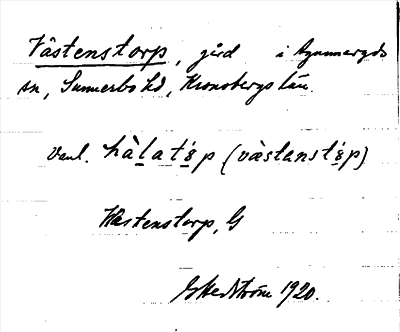 Västenstorp, gård i Agunnaryds
sn, Sunnerbo hd, Kronobergs län.
Vanl. hàlatǿp (vàstanstǿp)
Västenstorp, G
Ekedström 1920.